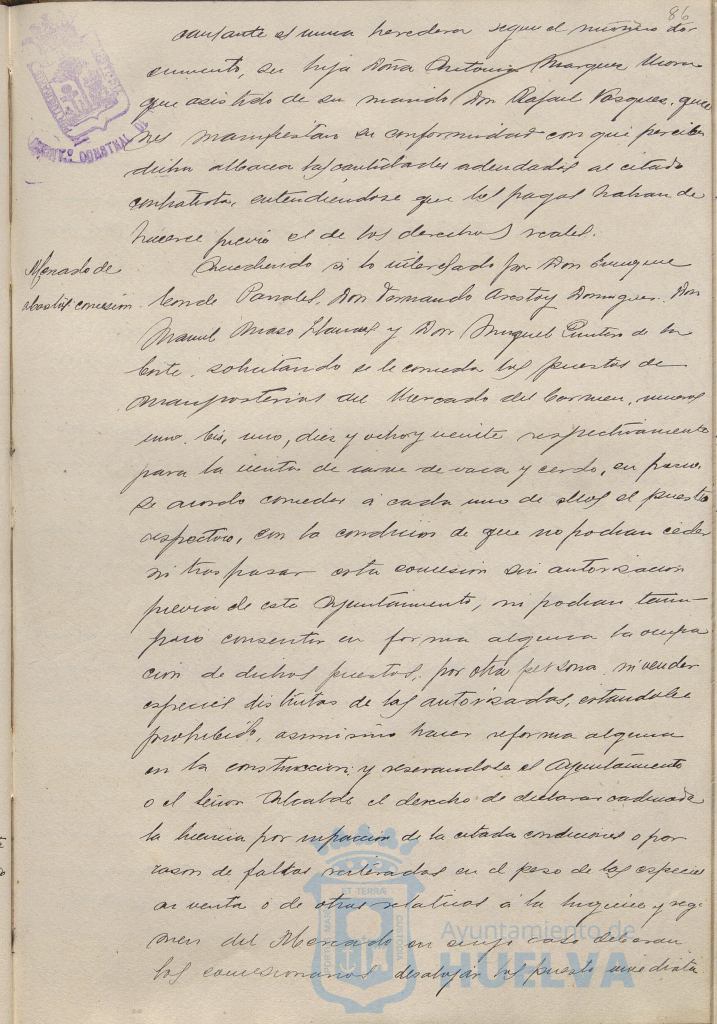 86
causante es unica heredera segun el mismo do-
cumento, su hija Doña Antonia Marquez
que asistido de su marido Don Rafael Vasquez, quie-
nes manifiestan su conformidad con que perciba
dicho albacea las cantidades adeudadas al citado
contratista, entendiendose que los pagos habran de
hacerse previo el de los derechos reales.
Mercado de
abastos concesion.
Accediendo a lo interesado por Don Enrique
Conde Parrales, Don Fernando Dominguez, Don
Manuel y Don Miguel de la
Corte, solicitando se le conceda los puestos de
mamposterias del Mercado del Carmen, numeros
uno bis, uno, diez y ocho y veinte respectivamente
para la ventas de carne de vaca y cerdo,
se acordo conceder á cada uno de ellos el puesto
respectivo, con la condicion de que no podran ceder
ni traspasar esta concesion sin autorizacion
previa de este Ayuntamiento, ni podran tam-
poco consentir en forma alguna la ocupa-
cion de dichos puestos, por otra persona, ni vender
especies distintas de las autorizadas, estandole
prohibido, asimismo hacer reforma alguna
en la construccion; y reservandose el Ayuntamiento
o el Señor Alcalde el derecho de declarar caducada
la licencia por infraccion de la citada condiciones o por
razon de faltas reiteradas en el peso de las especies
en venta o de otras relativas á la higiene y regi-
men del Mercado en cuyo caso deberan
los concesionarios desalojar los puesto inmediata
Ayuntamiento de
HUELVA